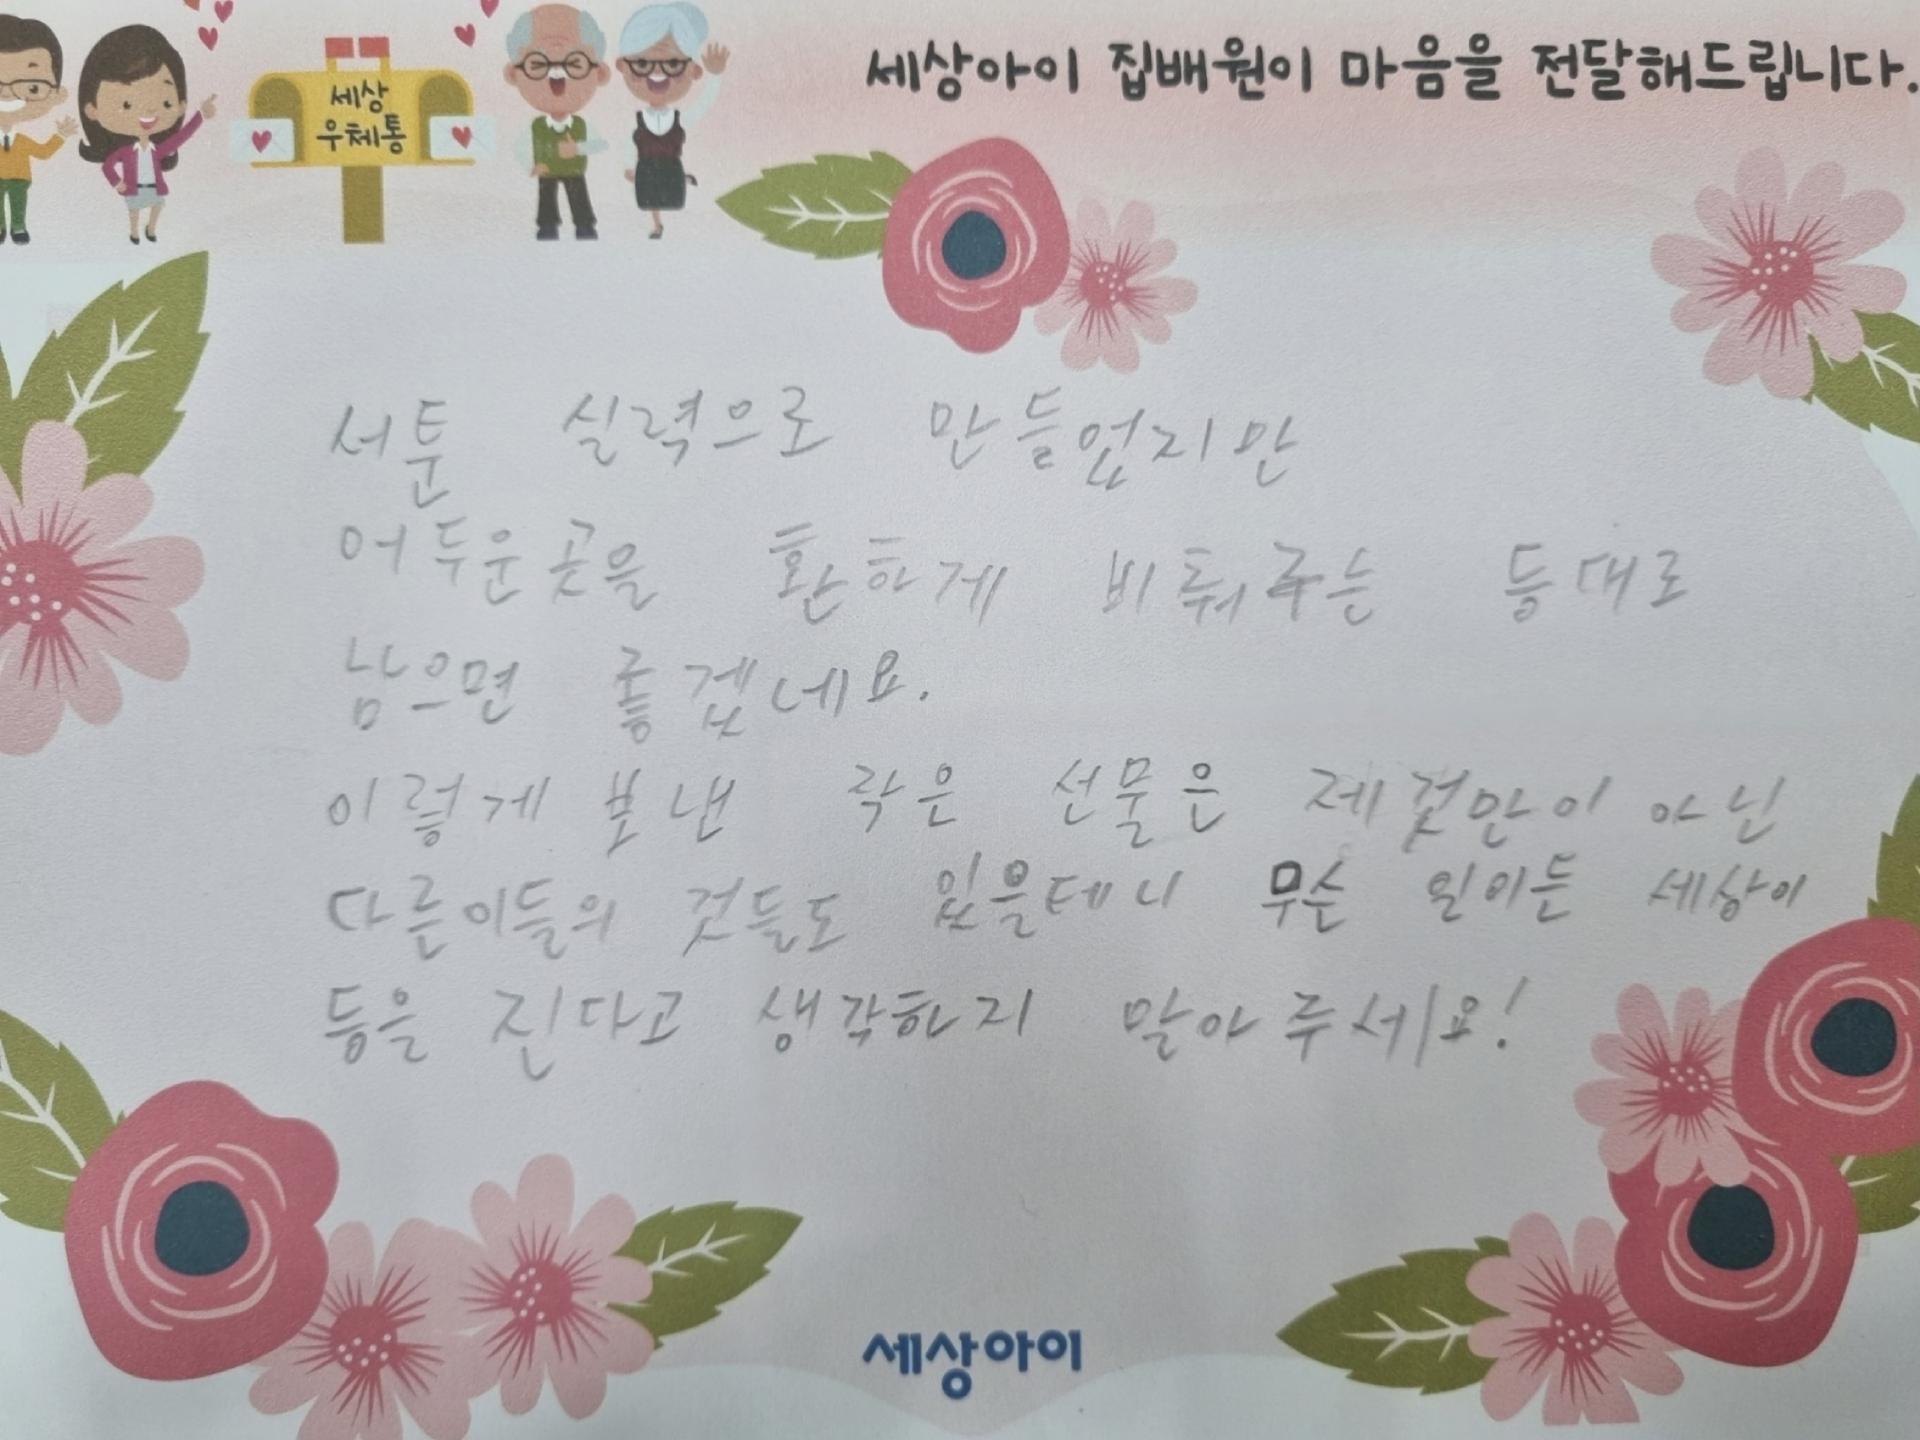 세상아이 집배원이 마음을 전달해드립니다.
세상
우체통
서툰 실력으로 만들었지만
어두운곳을 환하게 비춰주는 등대로
남으면 좋겠네요.
이렇게 보낸 작은 선물은 제것만이 아닌
다른이들의 것들도 있을테니 무슨 일이든 세상이
등을 진다고 생각하지 말아주세요!
세상아이